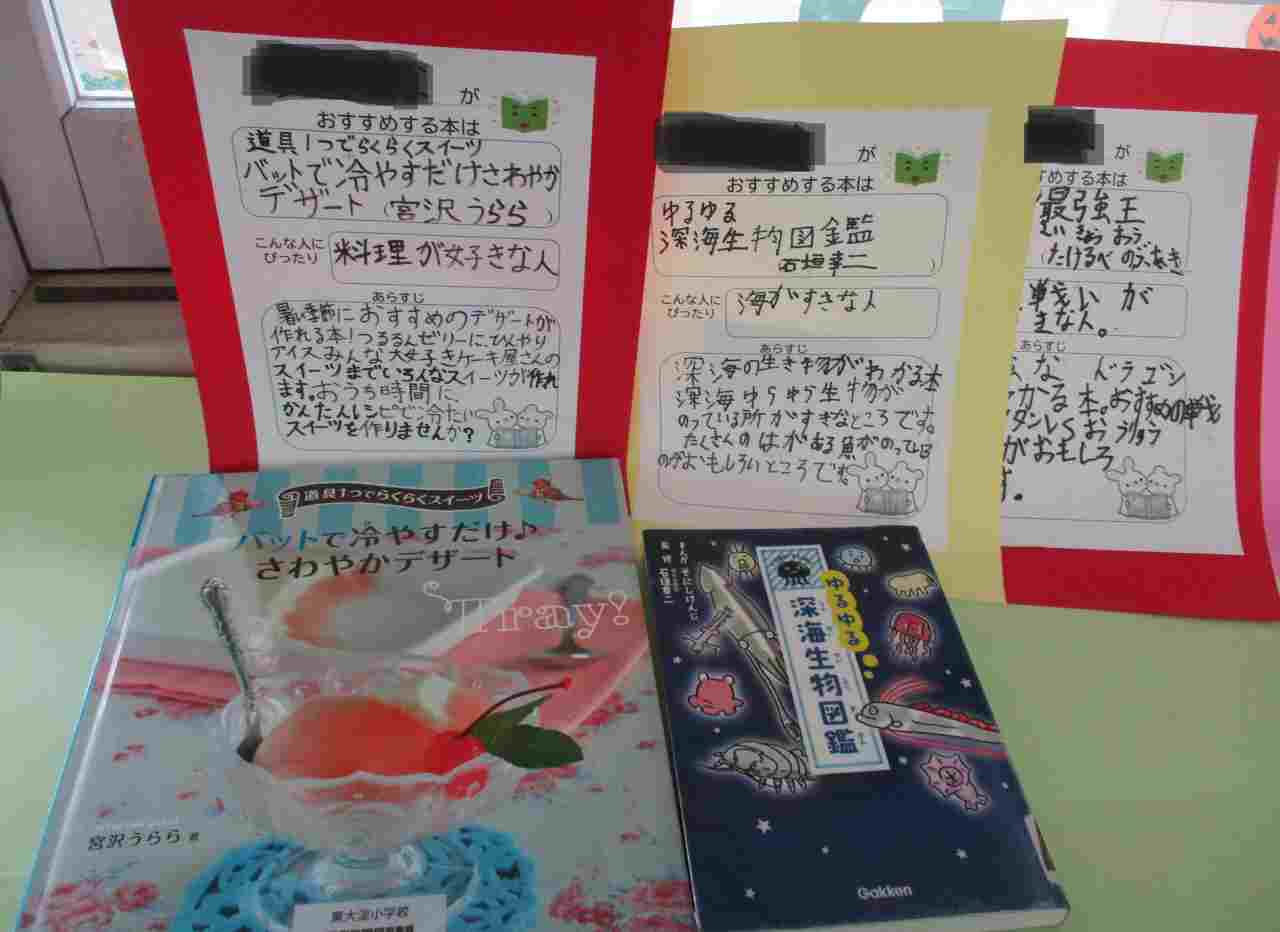 が
おすすめする本は
道具1つでらくらくスイーツ
バットで冷やすだけさわやか
デザート（宮沢うらら）
こんな人に
ぴったり
料理が好きな人
あらすじ
暑い季節におすすめのデザートが
作れる本！つるるんゼリーに、ひんやり
アイスみんな大好きケーキ屋さんの
スイーツまでいろんなスイーツが作れ
ます。おうち時間に、
かんたんレシピで冷たい
スイーツを作りませんか?
が
おすすめする本は
ゆるゆる
深海生物図鑑
石垣幸二）
こんな人に
ぴったり
海がすきな人
あらすじ
深海の生き物がわかる本
深海ゆらゆら生物が
のっている所がすきなところです。
たくさんのはがある魚がのっている
のがおもしろいところです。
が
すめする本は
最強王
（たけるべ のぶあき
戦いが
きな人。
あらすじ
な ドラゴン
かる本。おすすめの戦
がおもしろ
す。
道具1つでらくらくスイーツ
バットで冷やすだけ♪
さわやかデザート
Tray!
宮沢うらら 著
東大淀小学校
まんが そにしけんじ
監修 石垣幸二
ゆるゆる
深海生物図鑑
Gakken